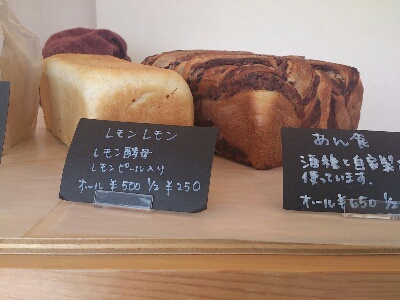 レモンレモン
レモン酵母
レモンピール入り
ホール ¥500 ½ ¥250
あん食
酒種と自家製
使っています。
ホール ¥650 ½